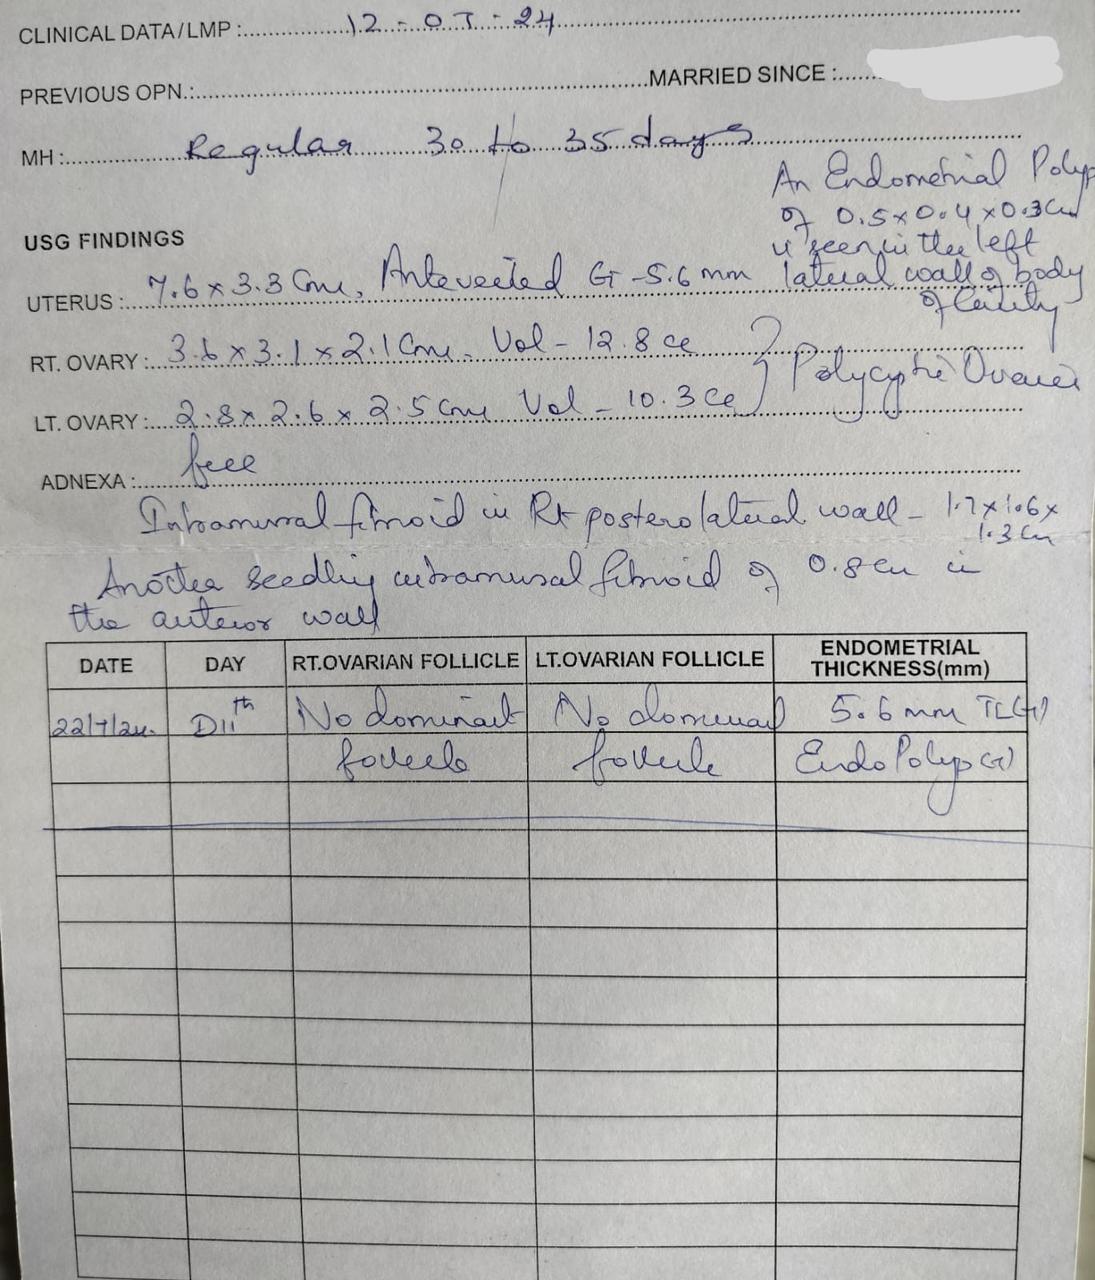 CLINICAL DATA/LMP : 12 - 07 - 24
PREVIOUS OPN.: MARRIED SINCE :
MH : Regular 30 to 35 days
An Endometrial Polyp
of 0.5 x 0.4 x 0.3 cm
is seen in the left
lateral wall of body
of cavity
USG FINDINGS
UTERUS : 7.6 x 3.3 Cms, Anteverted ET - 5.6 mm
RT. OVARY : 3.6 x 3.1 x 2.1 Cms. Vol - 12.8 cc
LT. OVARY : 2.8 x 2.6 x 2.5 Cms Vol - 10.3 cc
} Polycystic Ovaries
ADNEXA : free
Intramural fibroid in Rt posterolateral wall - 1.7 x 1.6 x
1.3 cm
Another seedling intramural fibroid of 0.8 cm in
the anterior wall
DATE DAY RT.OVARIAN FOLLICLE LT.OVARIAN FOLLICLE ENDOMETRIAL THICKNESS(mm)
22/7/24. D11th No dominant No dominant 5.6 mm TL(+)
follicle follicle Endo Polyp (+)